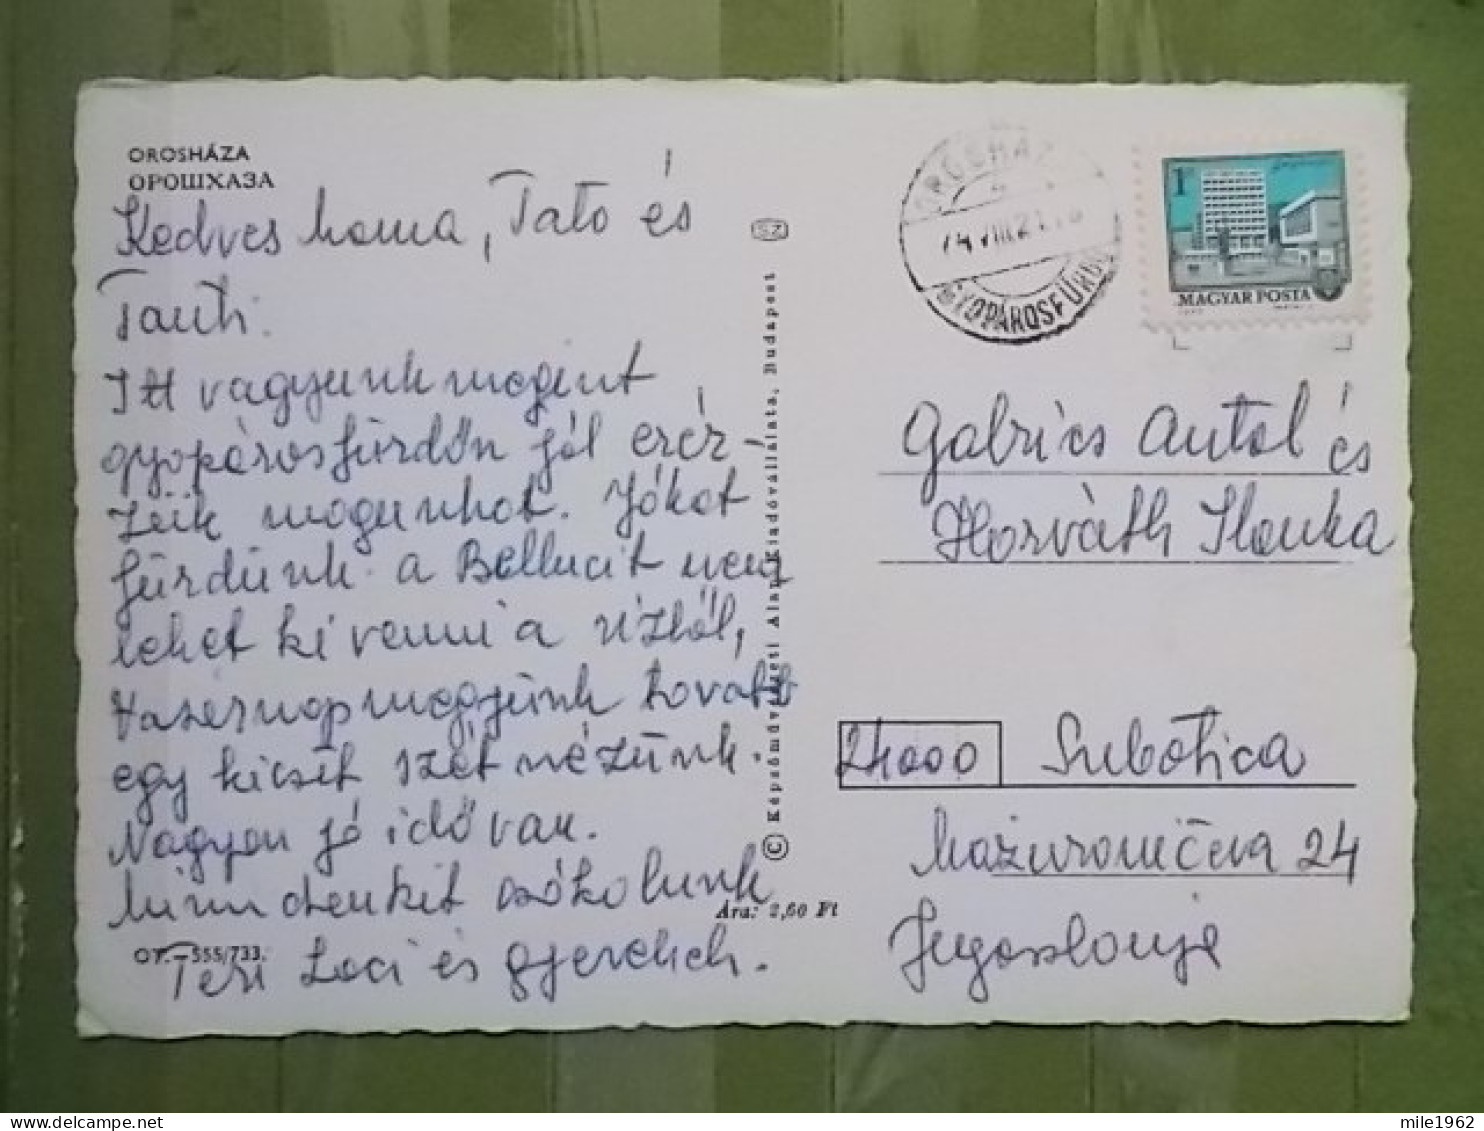 OROSHÁZA
ОРОШХАЗА
Kedves Mama, Tato és
Tanti.
Itt vagyunk megint
gyopárosfürdőn jól érez-
zük magunkat. Jókat
fürdünk. a Bellucit nem
lehet ki venni a vízből,
Vasárnap megyünk tovább
egy kicsit szét nézünk.
Nagyon jó idő van.
Mindenkit csókolunk
Teri Laci és gyerekek.
OT.—555/733.
Ára: 2,60 Ft
© Képzőművészeti Alap Kiadóvállalata, Budapest
SZ
OROSHÁZA
74 VIII 21
GYOPÁROSFÜRDŐ
1Ft
MAGYAR POSTA
Gabrics Antal és
Horváth Ilonka
24000 Subotica
Mažuronićeva 24
Jugoslavija
delcampe.net
mile1962